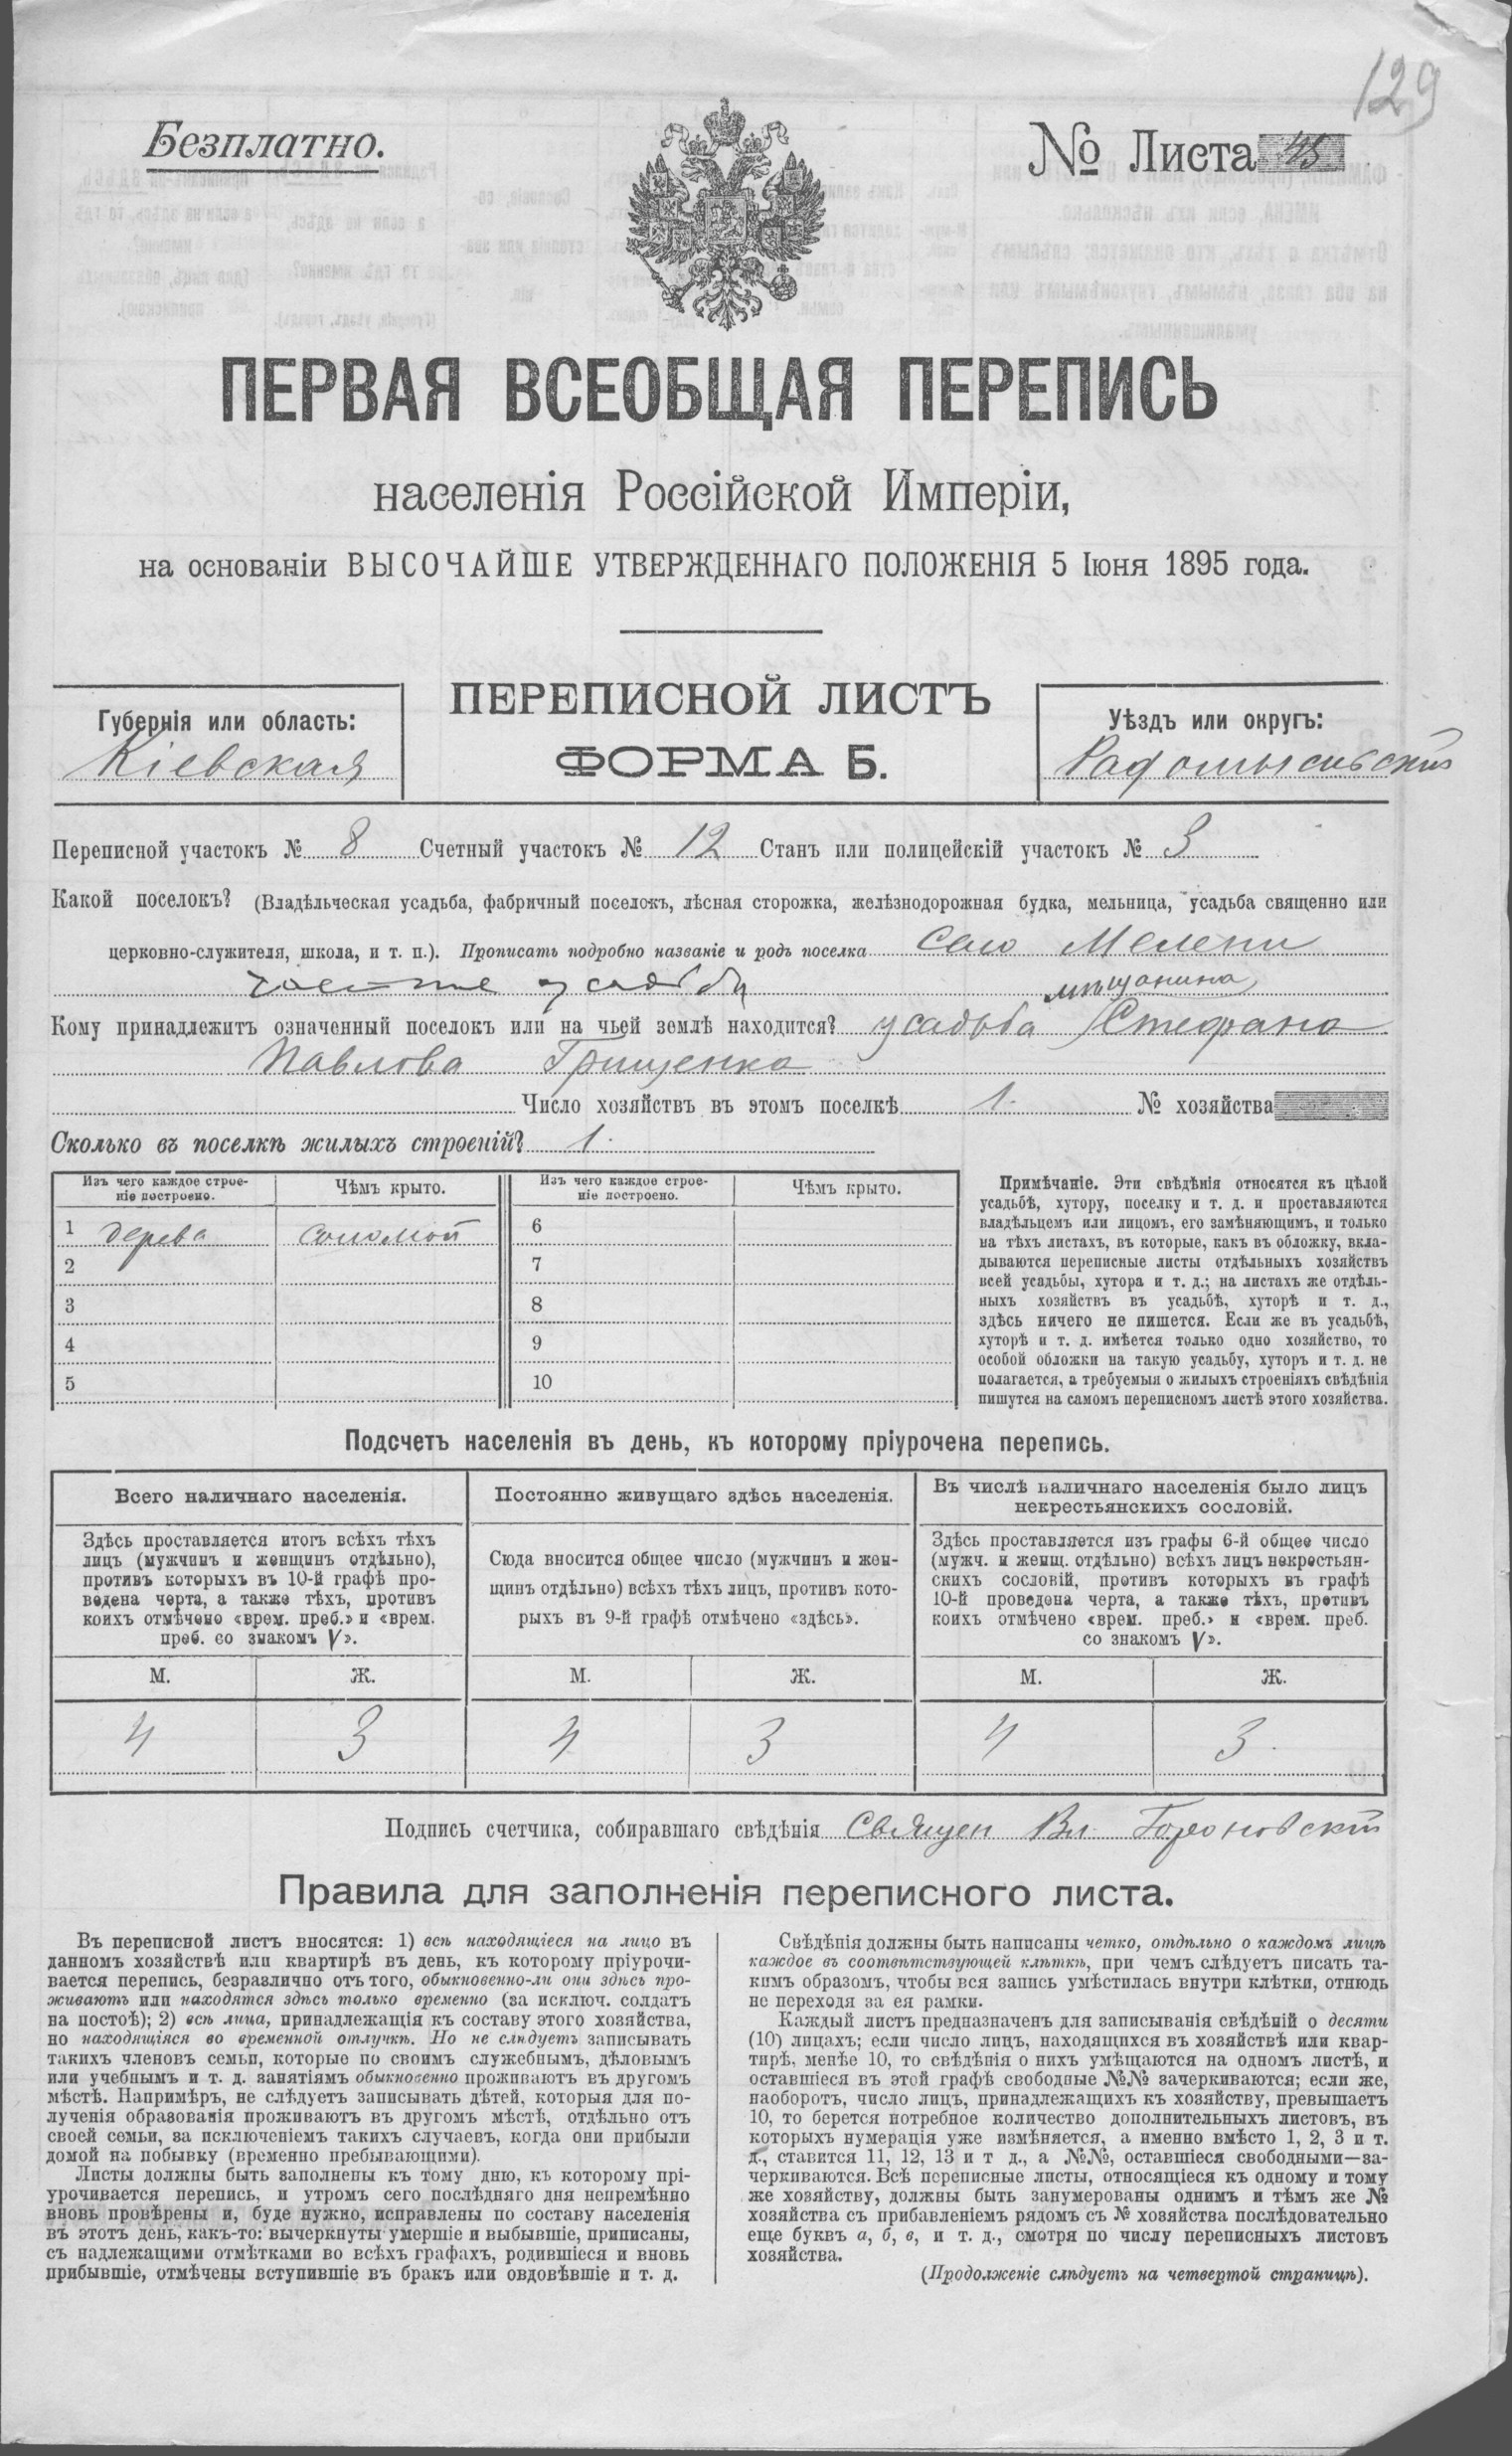 129
Безплатно.
№ Листа 45
ПЕРВАЯ ВСЕОБЩАЯ ПЕРЕПИСЬ
населенія Россійской Имперіи,
на основаніи ВЫСОЧАЙШЕ УТВЕРЖДЕННАГО ПОЛОЖЕНІЯ 5 Іюня 1895 года.
Губернія или область:
Кіевская
ПЕРЕПИСНОЙ ЛИСТЪ
ФОРМА Б.
Уѣздъ или округъ:
Радомысльскій
Переписной участокъ № 8 Счетный участокъ № 12 Станъ или полицейскій участокъ № 3
Какой поселокъ? (Владѣльческая усадьба, фабричный поселокъ, лѣсная сторожка, желѣзнодорожная будка, мельница, усадьба священно или
церковно-служителя, школа, и т. п.). Прописать подробно названіе и родъ поселка Село Мелени
усадьба
мѣщанина
Кому принадлежитъ означенный поселокъ или на чьей землѣ находится? усадьба Стефана
Павлова Грищенка
Число хозяйствъ въ этомъ поселкѣ 1. № хозяйства
Сколько въ поселкѣ жилыхъ строеній? 1.
Изъ чего каждое строе-
ніе построено.
Чѣмъ крыто.
Изъ чего каждое строе-
ніе построено.
Чѣмъ крыто.
1 дерева соломой 6
2 7
3 8
4 9
5 10
Примѣчаніе. Эти свѣдѣнія относятся къ цѣлой
усадьбѣ, хутору, поселку и т. д. и проставляются
владѣльцемъ или лицомъ, его замѣняющимъ, и только
на тѣхъ листахъ, въ которые, какъ въ обложку, вкла-
дываются переписные листы отдѣльныхъ хозяйствъ
всей усадьбы, хутора и т. д.; на листахъ же отдѣль-
ныхъ хозяйствъ въ усадьбѣ, хуторѣ и т. д.,
здѣсь ничего не пишется. Если же въ усадьбѣ,
хуторѣ и т. д. имѣется только одно хозяйство, то
особой обложки на такую усадьбу, хуторъ и т. д. не
полагается, а требуемыя о жилыхъ строеніяхъ свѣдѣнія
пишутся на самомъ переписномъ листѣ этого хозяйства.
Подсчетъ населенія въ день, къ которому пріурочена перепись.
Всего наличнаго населенія.
Здѣсь проставляется итогъ всѣхъ тѣхъ
лицъ (мужчинъ и женщинъ отдѣльно),
противъ которыхъ въ 10-й графѣ про-
ведена черта, а также тѣхъ, противъ
коихъ отмѣчено «врем. преб.» и «врем.
преб. со знакомъ V».
М. Ж.
4 3
Постоянно живущаго здѣсь населенія.
Сюда вносится общее число (мужчинъ и жен-
щинъ отдѣльно) всѣхъ тѣхъ лицъ, противъ кото-
рыхъ въ 9-й графѣ отмѣчено «здѣсь».
М. Ж.
4 3
Въ числѣ наличнаго населенія было лицъ
некрестьянскихъ сословій.
Здѣсь проставляется изъ графы 6-й общее число
(мужч. и женщ. отдѣльно) всѣхъ лицъ некрестьян-
скихъ сословій, противъ которыхъ въ графѣ
10-й проведена черта, а также тѣхъ, противъ
коихъ отмѣчено «врем. преб.» и «врем. преб.
со знакомъ V».
М. Ж.
4 3.
Подпись счетчика, собиравшаго свѣдѣнія Священ Вл.
Правила для заполненія переписного листа.
Въ переписной листъ вносятся: 1) всѣ находящіеся на лицо въ
данномъ хозяйствѣ или квартирѣ въ день, къ которому пріурочи-
вается перепись, безразлично отъ того, обыкновенно-ли они здѣсь про-
живаютъ или находятся здѣсь только временно (за исключ. солдатъ
на постоѣ); 2) всѣ лица, принадлежащія къ составу этого хозяйства,
но находящіяся во временной отлучкѣ. Но не слѣдуетъ записывать
такихъ членовъ семьи, которые по своимъ служебнымъ, дѣловымъ
или учебнымъ и т. д. занятіямъ обыкновенно проживаютъ въ другомъ
мѣстѣ. Напримѣръ, не слѣдуетъ записывать дѣтей, которыя для по-
лученія образованія проживаютъ въ другомъ мѣстѣ, отдѣльно отъ
своей семьи, за исключеніемъ такихъ случаевъ, когда они прибыли
домой на побывку (временно пребывающими).
Листы должны быть заполнены къ тому дню, къ которому прі-
урочивается перепись, и утромъ сего послѣдняго дня непремѣнно
вновь провѣрены и, буде нужно, исправлены по составу населенія
въ этотъ день, какъ-то: вычеркнуты умершіе и выбывшіе, приписаны,
съ надлежащими отмѣтками во всѣхъ графахъ, родившіеся и вновь
прибывшіе, отмѣчены вступившіе въ бракъ или овдовѣвшіе и т. д.
Свѣдѣнія должны быть написаны четко, отдѣльно о каждомъ лицѣ
каждое въ соотвѣтствующей клѣткѣ, при чемъ слѣдуетъ писать та-
кимъ образомъ, чтобы вся запись умѣстилась внутри клѣтки, отнюдь
не переходя за ея рамки.
Каждый листъ предназначенъ для записыванія свѣдѣній о десяти
(10) лицахъ; если число лицъ, находящихся въ хозяйствѣ или квар-
тирѣ, менѣе 10, то свѣдѣнія о нихъ умѣщаются на одномъ листѣ, и
оставшіеся въ этой графѣ свободные №№ зачеркиваются; если же,
наоборотъ, число лицъ, принадлежащихъ къ хозяйству, превышаетъ
10, то берется потребное количество дополнительныхъ листовъ, въ
которыхъ нумерація уже измѣняется, а именно вмѣсто 1, 2, 3 и т.
д., ставится 11, 12, 13 и т д., а №№, оставшіеся свободными—за-
черкиваются. Всѣ переписные листы, относящіеся къ одному и тому
же хозяйству, должны быть занумерованы однимъ и тѣмъ же №
хозяйства съ прибавленіемъ рядомъ съ № хозяйства послѣдовательно
еще буквъ а, б, в, и т. д., смотря по числу переписныхъ листовъ
хозяйства.
(Продолженіе слѣдуетъ на четвертой страницѣ).